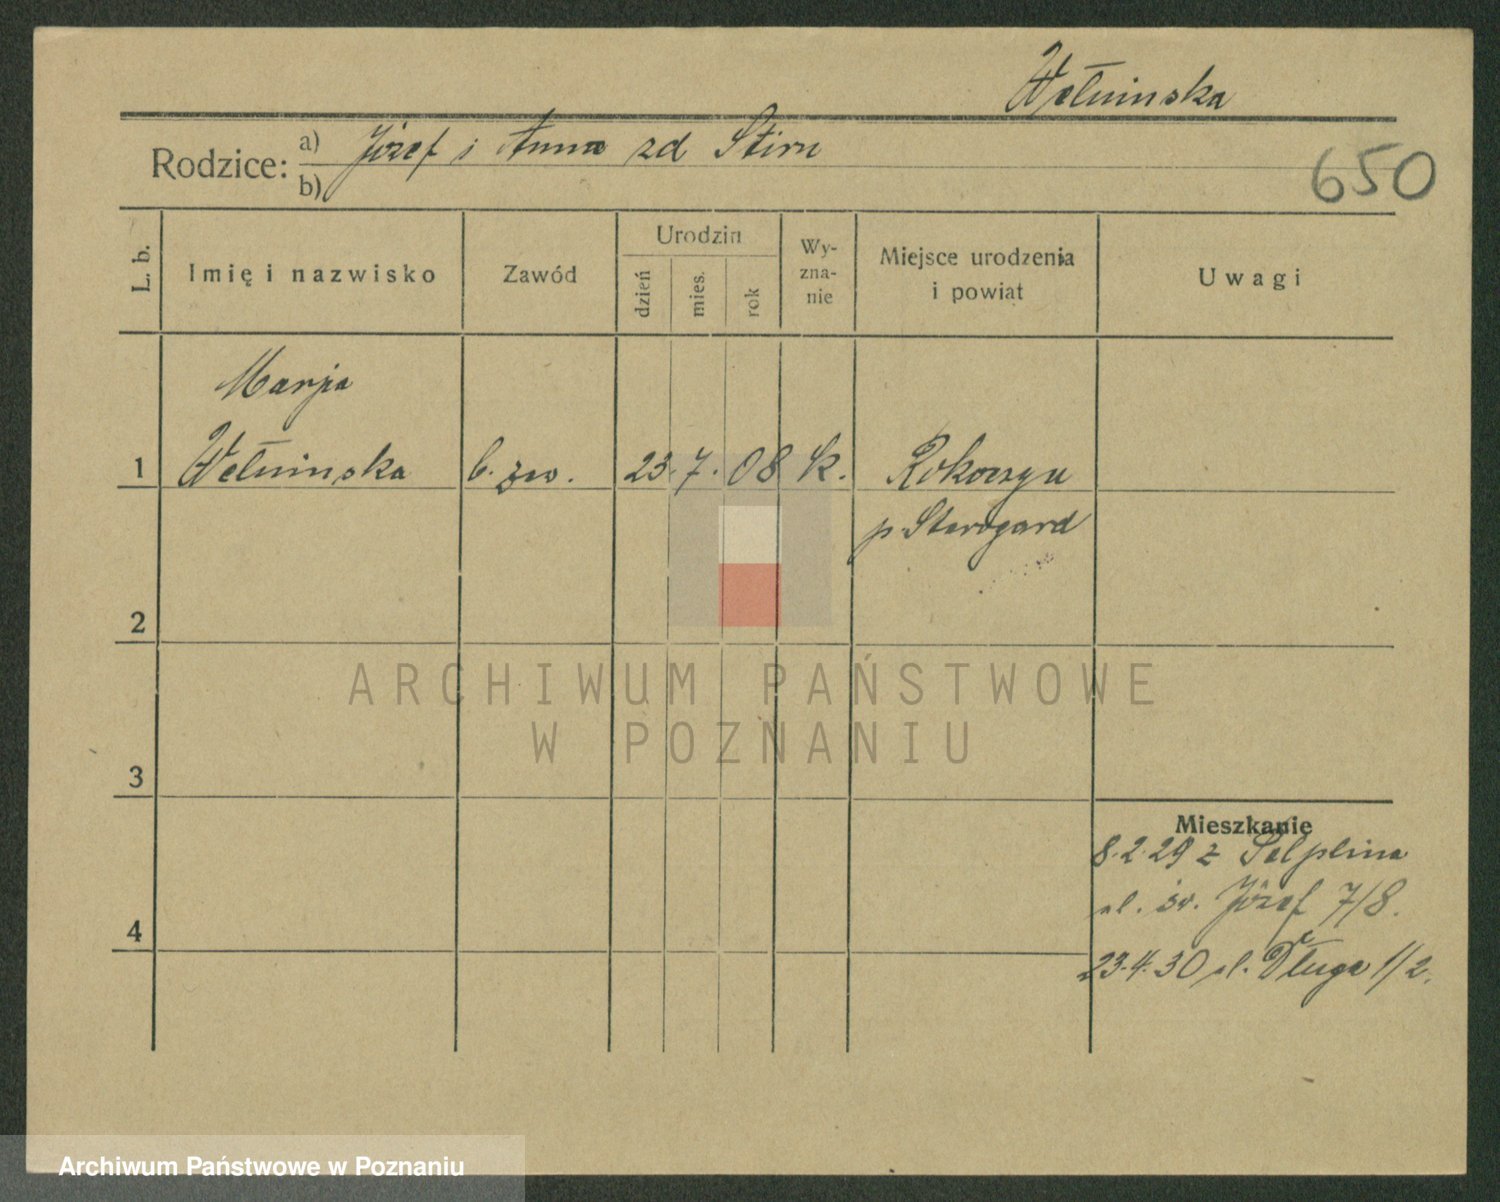 Wełninska
Rodzice: a) Józef i Anna zd Stiru
b)
650
L. b.
Imię i nazwisko
Zawód
Urodzin
dzień
mies.
rok
Wy-
zna-
nie
Miejsce urodzenia
i powiat
Uwagi
Marja
1 Wełninska b. zaw. 23. 7. 08 k. Rokoczyn
p. Starogard
2
ARCHIWUM PAŃSTWOWE
W POZNANIU
3
Mieszkanie
8.2.29 z Pelplina
ul. św. Józef 7/8.
4
23.4.30 ul. Długa 1/2.
Archiwum Państwowe w Poznaniu